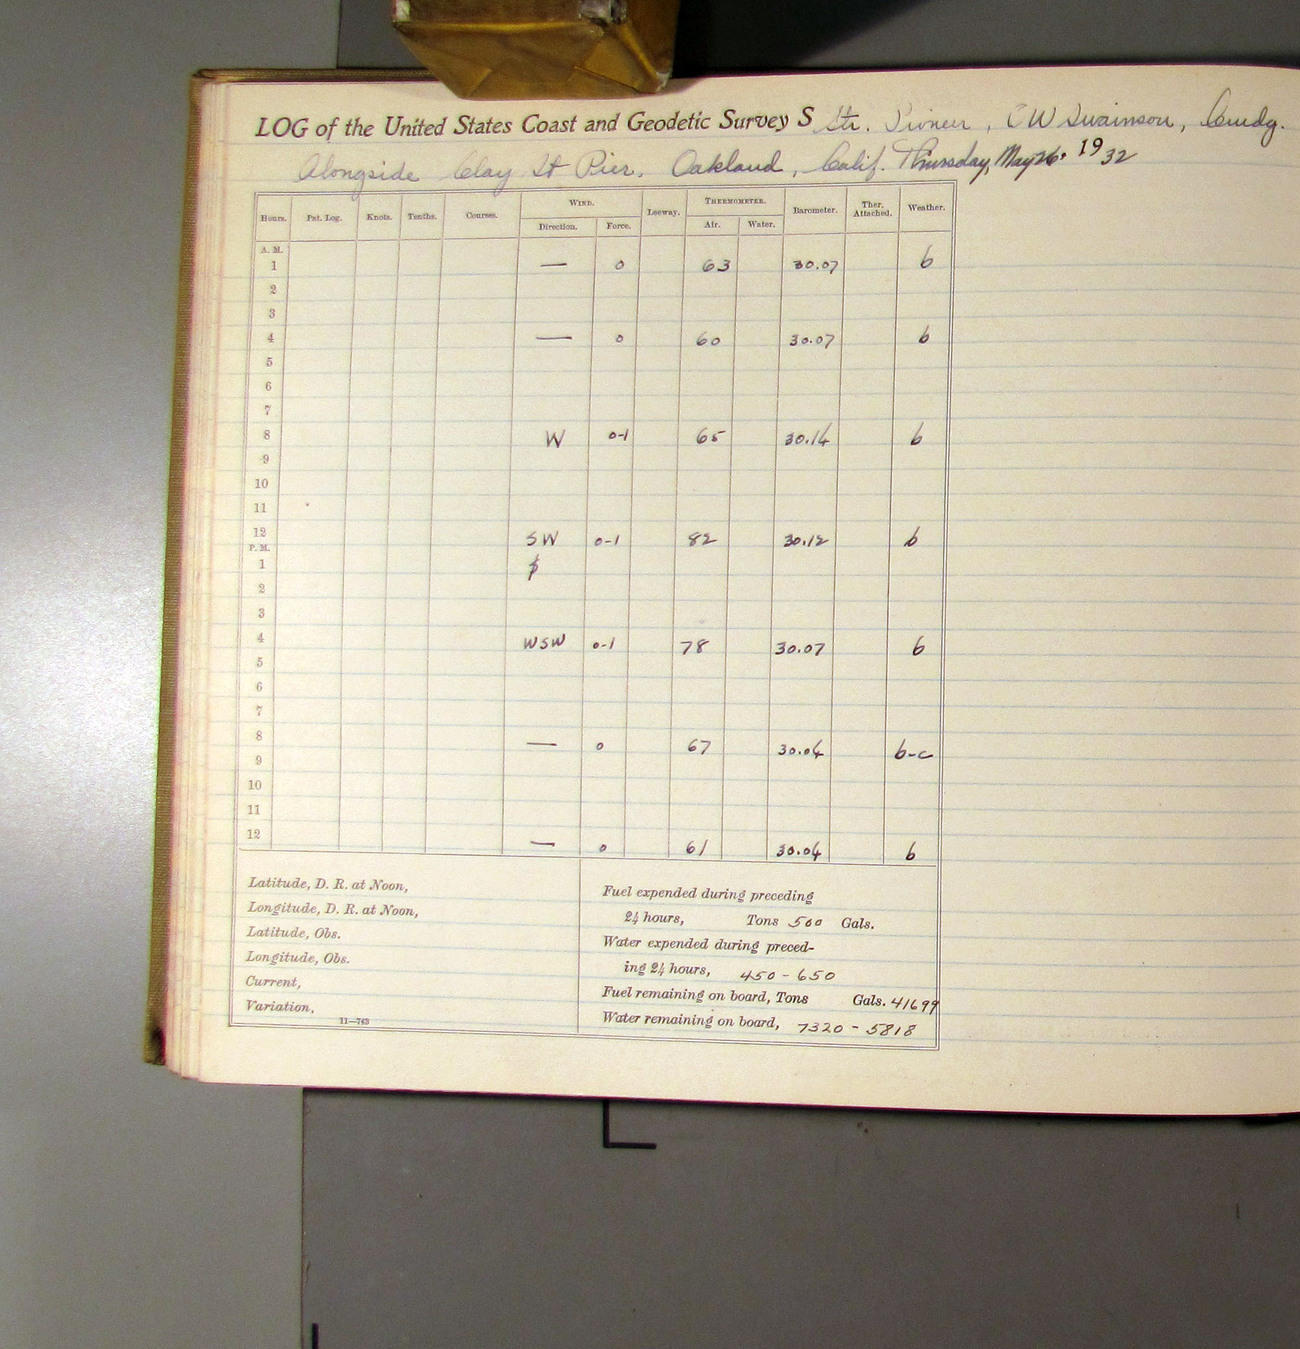 LOG of the United States Coast and Geodetic Survey S Str. Pioneer, O W Swainson, Comdg.
Alongside Clay St Pier, Oakland, Calif. Thursday, May 26, 1932
Hours. Pat. Log. Knots. Tenths. Courses. WIND. Leeway. THERMOMETER. Barometer. Ther. Attached. Weather.
Direction. Force. Air. Water.
A. M.
1 — 0 63 30.07 b
2
3
4 — 0 60 30.07 b
5
6
7
8 W 0-1 65 30.14 b
9
10
11
12 SW 0-1 82 30.12 b
P. M.
1
2
3
4 WSW 0-1 78 30.07 b
5
6
7
8 — 0 67 30.04 b-c
9
10
11
12 — 0 61 30.04 b
Latitude, D. R. at Noon,
Longitude, D. R. at Noon,
Latitude, Obs.
Longitude, Obs.
Current,
Variation,
11—763
Fuel expended during preceding
24 hours, Tons 500 Gals.
Water expended during preced-
ing 24 hours, 450 - 650
Fuel remaining on board, Tons Gals. 41699
Water remaining on board, 7320 - 5818